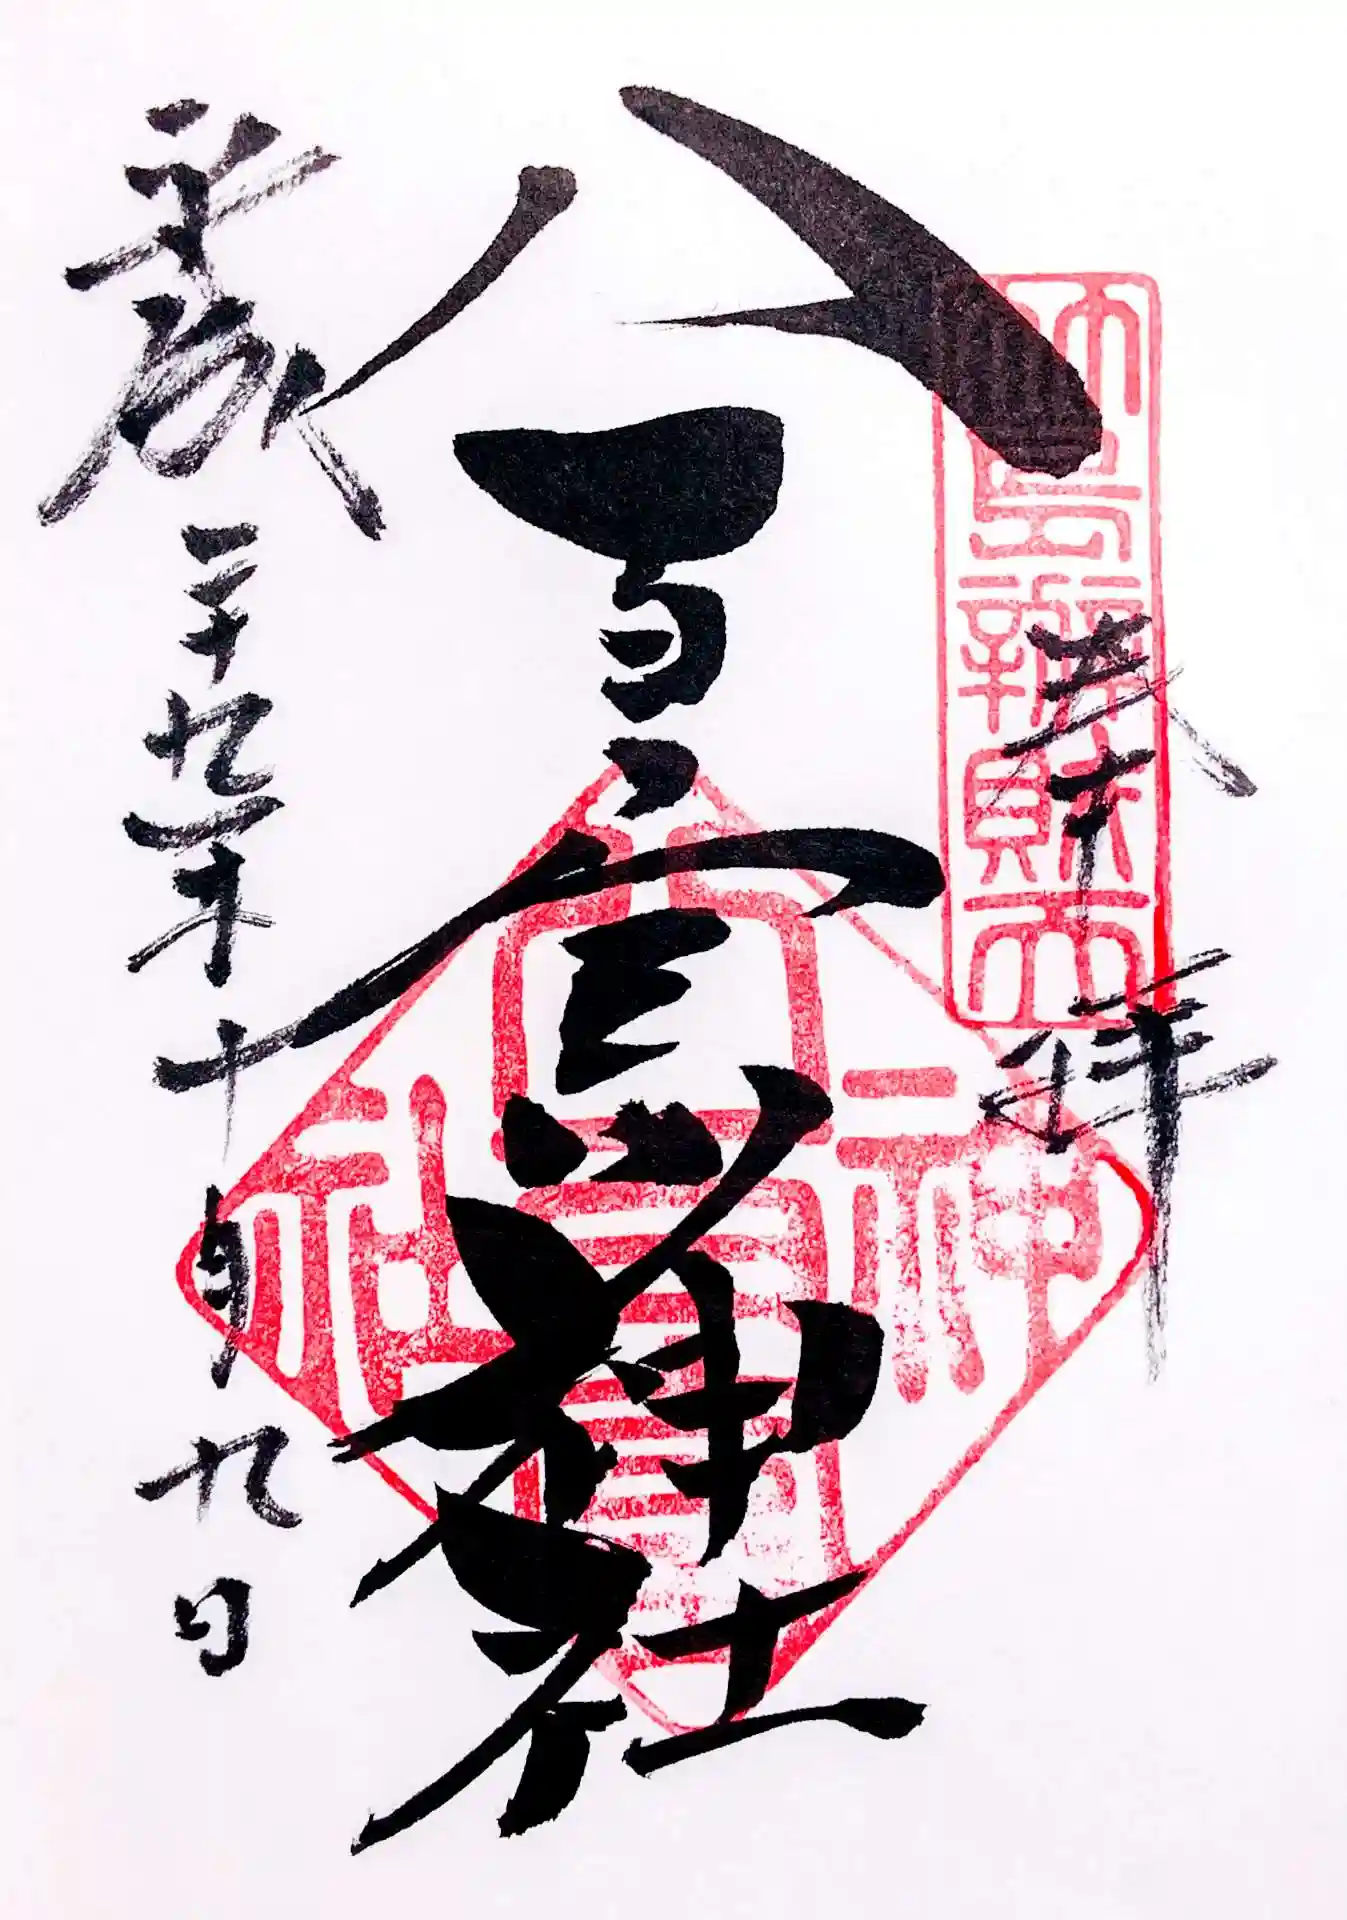 奉拝
竹島辨財天
八百富神社
八百富神社
平成二十九年十月九日